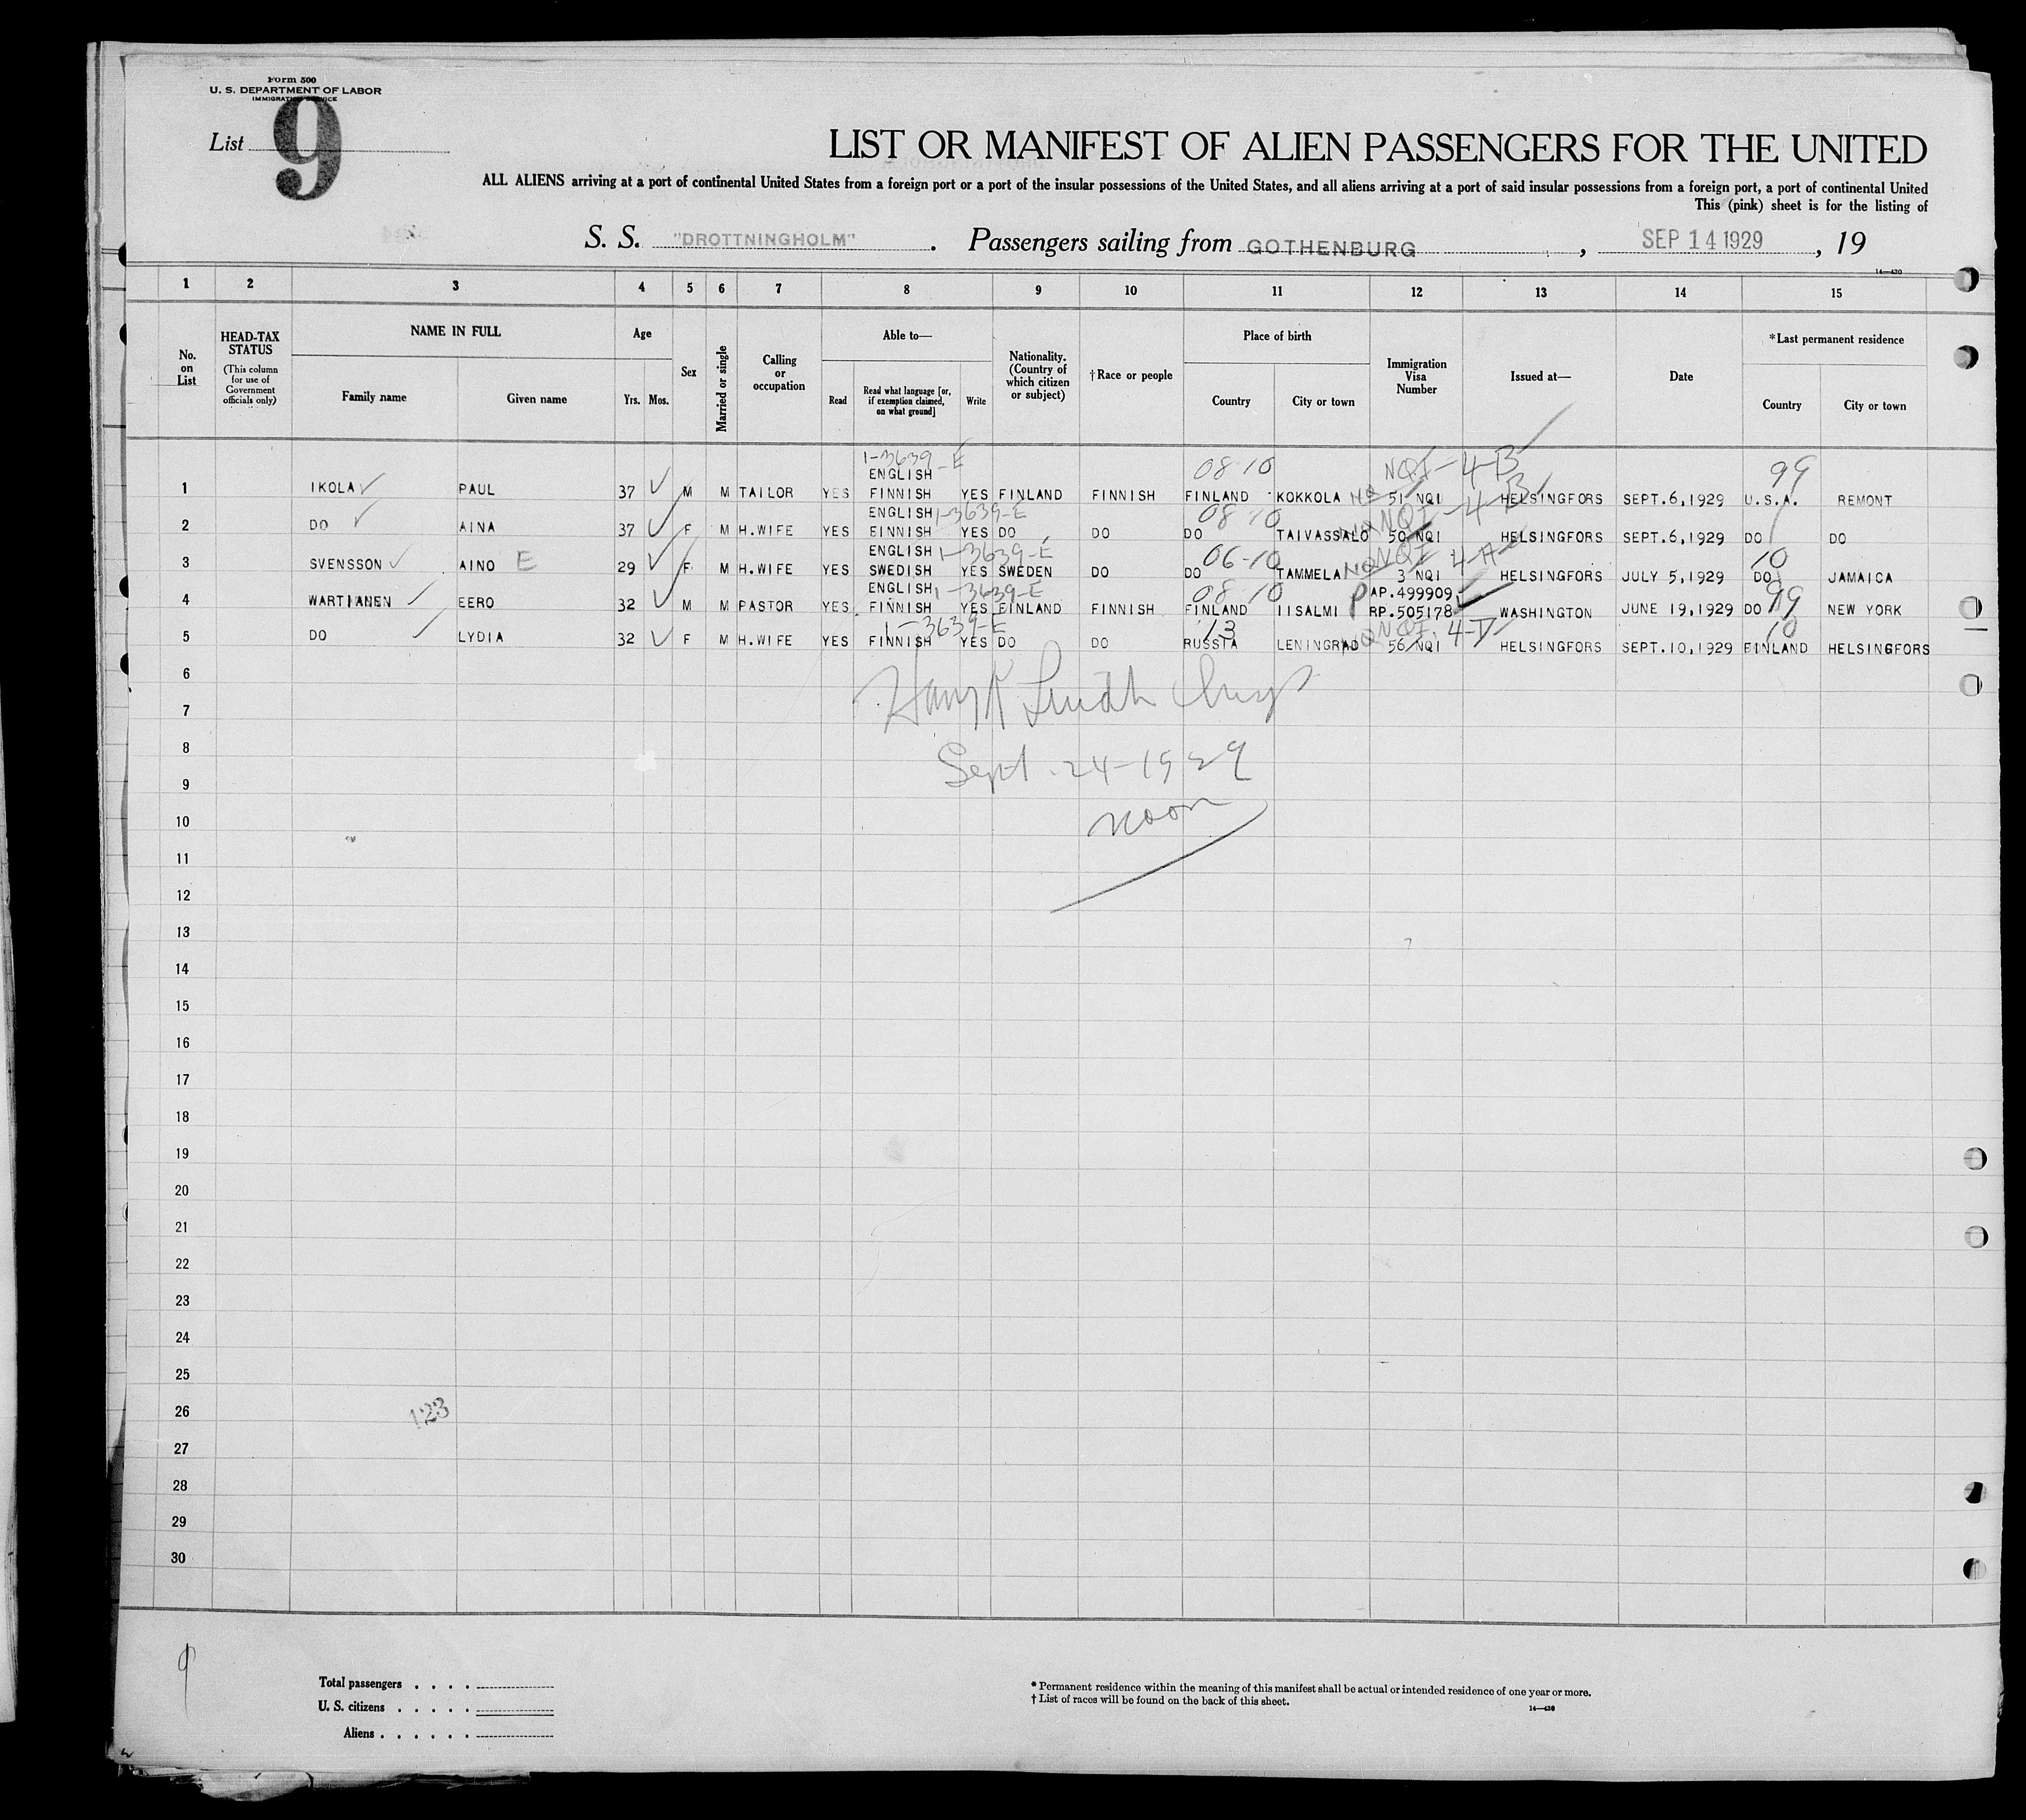 Form 500
U. S. DEPARTMENT OF LABOR
IMMIGRATION SERVICE
List 9
LIST OR MANIFEST OF ALIEN PASSENGERS FOR THE UNITED
ALL ALIENS arriving at a port of continental United States from a foreign port or a port of the insular possessions of the United States, and all aliens arriving at a port of said insular possessions from a foreign port, a port of continental United
This (pink) sheet is for the listing of
S. S. "DROTTNINGHOLM". Passengers sailing from GOTHENBURG, SEP 14 1929, 19
14—430
1 2 3 4 5 6 7 8 9 10 11 12 13 14 15
No. on List
HEAD-TAX STATUS
(This column for use of Government officials only)
NAME IN FULL
Family name
Given name
Age
Yrs. Mos.
Sex
Married or single
Calling or occupation
Able to—
Read
Read what language [or, if exemption claimed, on what ground]
Write
Nationality. (Country of which citizen or subject)
† Race or people
Place of birth
Country
City or town
Immigration Visa Number
Issued at—
Date
* Last permanent residence
Country
City or town
1-3639-E 08-10 NQI-4-B 99
1 IKOLA PAUL 37 M M TAILOR YES ENGLISH FINNISH YES FINLAND FINNISH FINLAND KOKKOLA 51 NQI HELSINGFORS SEPT.6,1929 U.S.A. REMONT
1-3639-E 08-10 NQI-4-B
2 DO AINA 37 F M H.WIFE YES ENGLISH FINNISH YES DO DO DO TAIVASSALO 50 NQI HELSINGFORS SEPT.6,1929 DO DO
1-3639-E 06-10 NQI 4-A 10
3 SVENSSON AINO E 29 F M H.WIFE YES ENGLISH SWEDISH YES SWEDEN DO DO TAMMELA 3 NQI HELSINGFORS JULY 5,1929 DO JAMAICA
1-3639-E 08-10 99
4 WARTIANEN EERO 32 M M PASTOR YES ENGLISH FINNISH YES FINLAND FINNISH FINLAND IISALMI PAP.499909 RP.505178 WASHINGTON JUNE 19,1929 DO NEW YORK
1-3639-E 13 NQI 4-D 10
5 DO LYDIA 32 F M H.WIFE YES FINNISH YES DO DO RUSSIA LENINGRAD 56 NQI HELSINGFORS SEPT.10,1929 FINLAND HELSINGFORS
6
7
8
Sept. 24-1929
9
noon
10
11
12
13
14
15
16
17
18
19
20
21
22
23
24
25
26
123
27
28
29
30
9
Total passengers
U. S. citizens
Aliens
* Permanent residence within the meaning of this manifest shall be actual or intended residence of one year or more.
† List of races will be found on the back of this sheet.
14—430